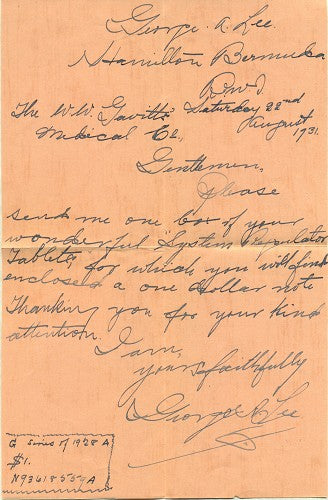 George A. Lee.
Hamilton Bermuda
B.W.I.
The W.W. Gavitts' Saturday 22nd
Medical Co, August 1931.
Gentlemen,
Please
send me one box of your
wonderful "System Regulator
Tablets, for which you will find
enclosed a one dollar note
Thanking you for your kind
attention.
I am,
yours faithfully
George A Lee
G Series of 1928 A
$1.